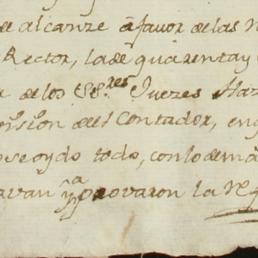 de alcanze à favor de las
Rector, la de quarenta y
de los SS.res Juezes Haz
sion del Contador, en
oydo todo, con lo demà
van y aprovaron la